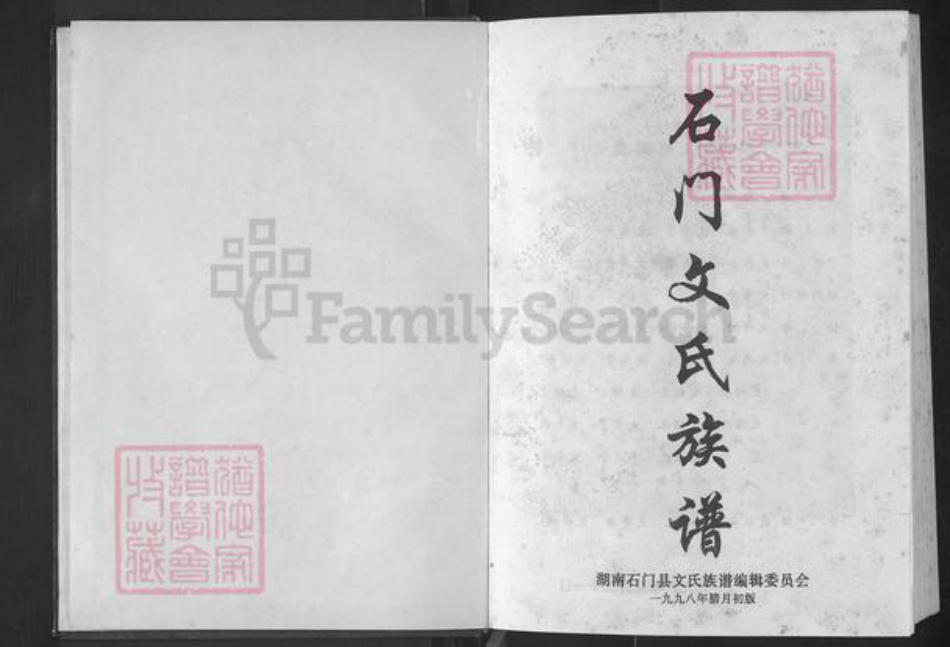 石门文氏族谱
湖南石门县文氏族谱编辑委员会
一九九八年腊月初版
猶他家
譜學會
收藏
猶他家
譜學會
收藏
FamilySearch